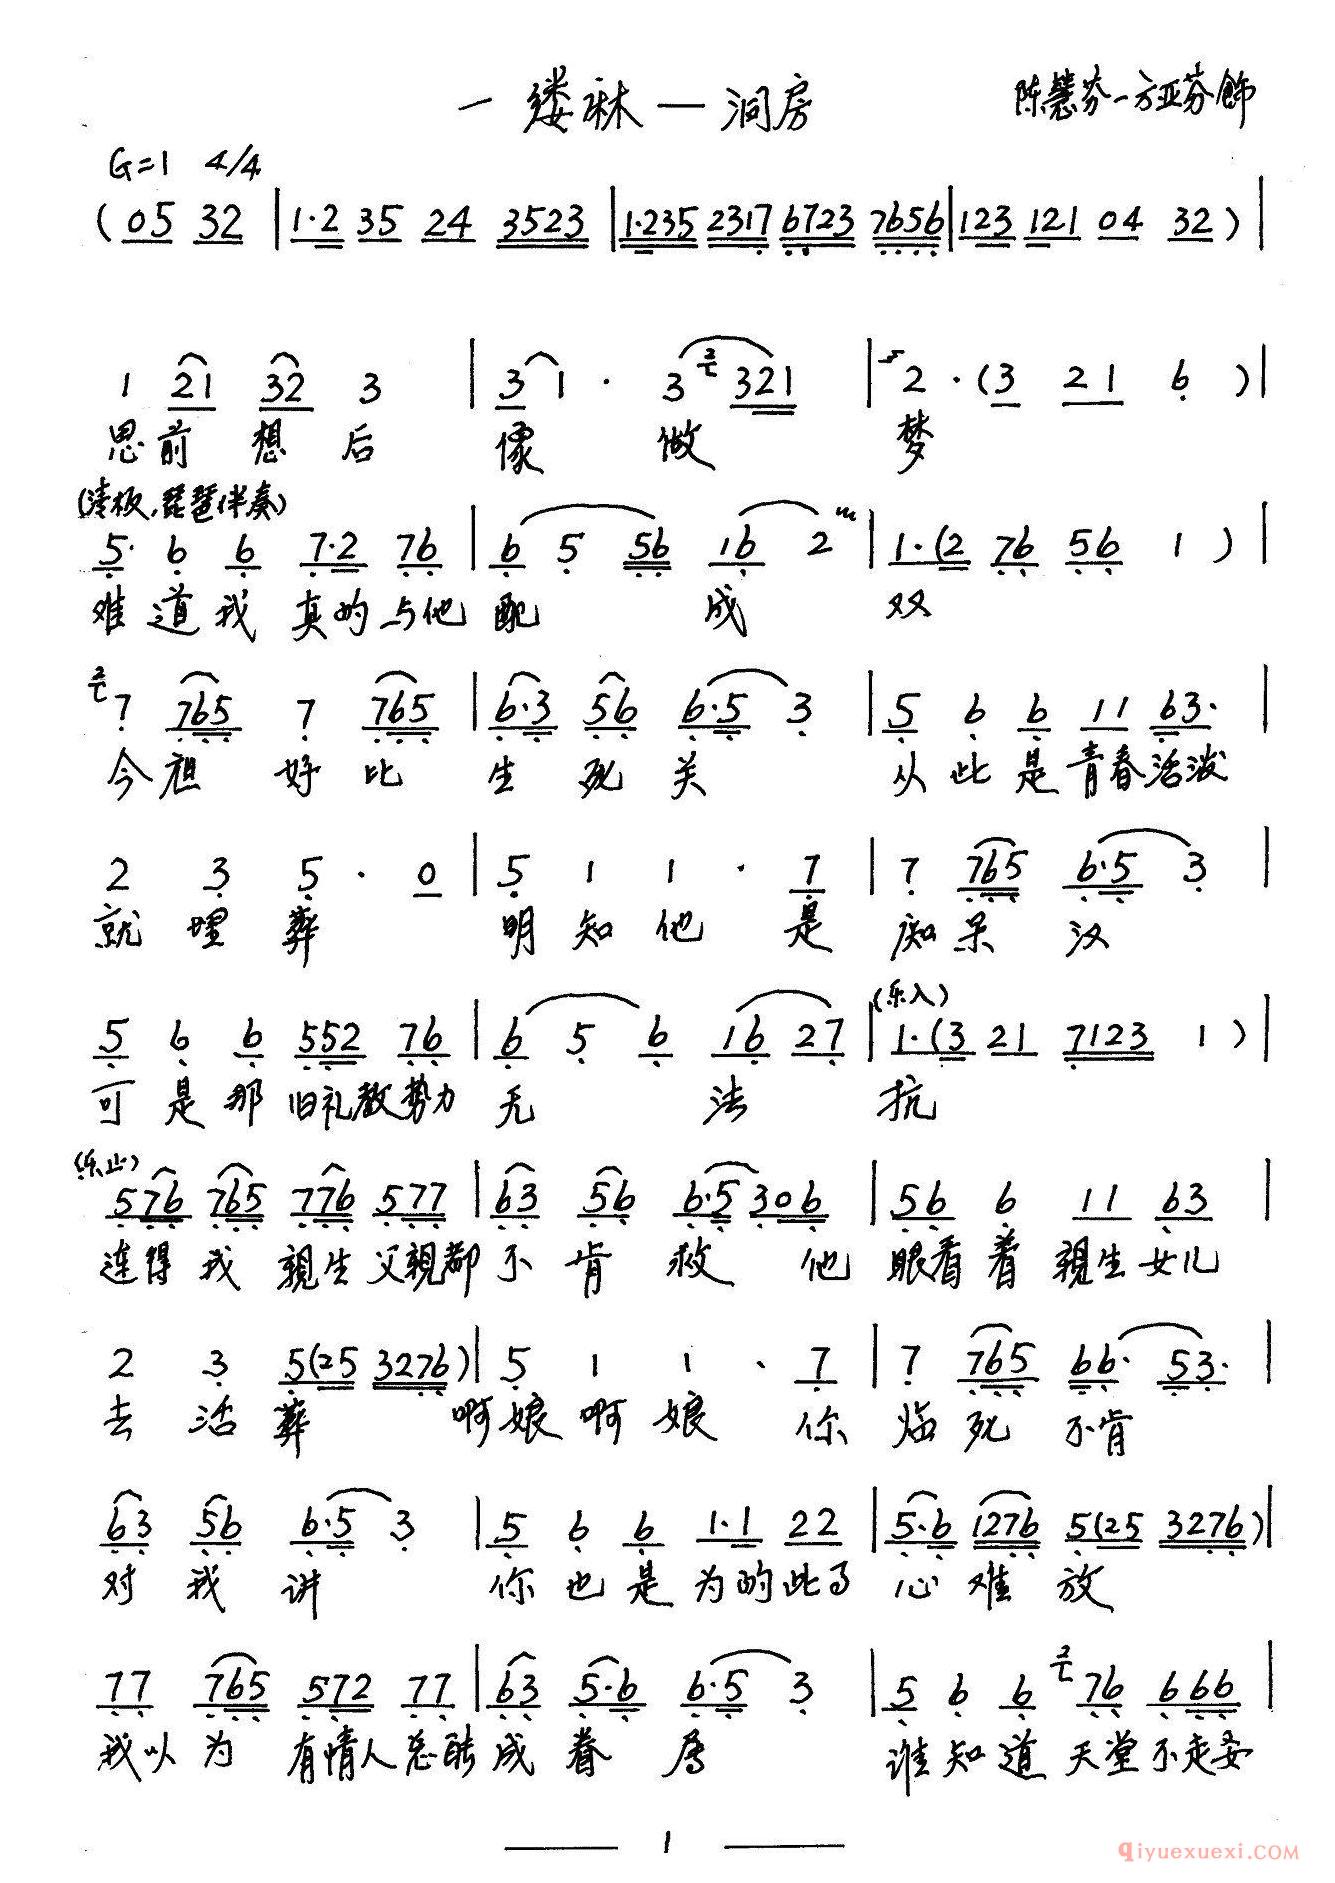 一缕麻—洞房
陈慧芬—方亚芬饰
G=1 4/4
(05 32 | 1·2 35 24 3523 | 1·235 2317 6723 7656 | 123 121 04 32 ) |
1 21 32 3 | 3 1 · 3 321 | 2 · (3 21 6 ) |
思前想后 像 做 梦
(清板,琵琶伴奏)
5· 6 6 7·2 76 | 6 5 56 16 2 | 1·(2 76 56 1 ) |
难道我真的与他配 成 双
7 765 7 765 | 6·3 56 6·5 3 | 5 6 6 11 63· |
今夜好比 生死关 从此是青春活泼
2 3 5 · 0 | 5 1 1 · 7 | 7 765 6·5 3 |
就埋葬 明知他是痴呆汉
(乐入)
5 6 6 552 76 | 6 5 6 16 27 | 1·(3 21 7123 1 ) |
可是那旧礼教势力无 法 抗
(乐止)
576 765 776 577 | 63 56 6·5 306 | 56 6 11 63 |
连得我親生父親都不肯救他 眼看着親生女儿
2 3 5(25 3276) | 5 1 1 · 7 | 7 765 66· 53· |
去活葬 啊娘啊娘 你临死不肯
63 56 6·5 3 | 5 6 6 1·1 22 | 5·6 1276 5(25 3276) |
对我讲 你也是为的此事心难放
77 765 572 77 | 63 5·6 6·5 3 | 5 6 6 76 666 |
我以为有情人总能成眷属 谁知道天堂不走要
1
qiyuexuexi.com